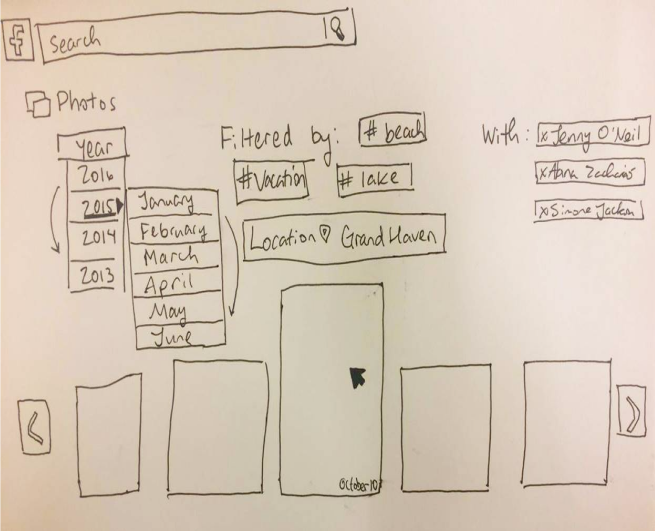 f
Search
Photos
Year
2016
2015
2014
2013
January
February
March
April
May
June
Filtered by: # beach
#Vacation # lake
Location Grand Haven
With: x Jenny O'Neil
x
x Simone Jackson
October 10